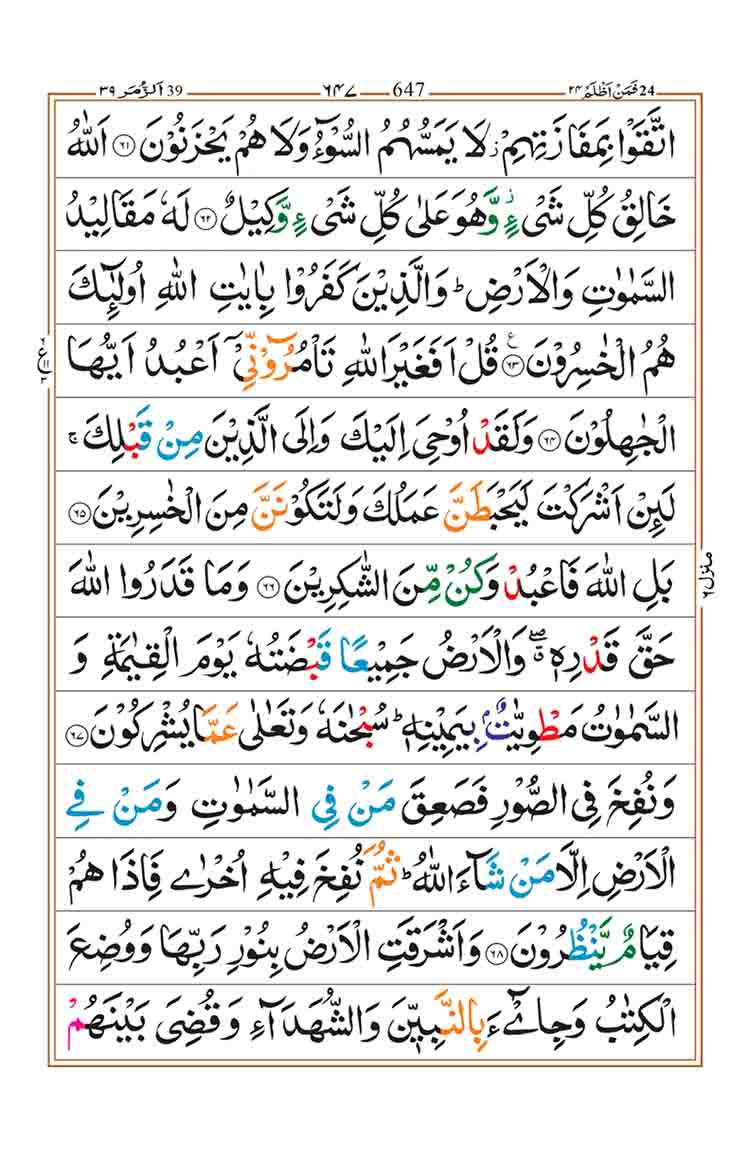 24 فَمَنْ اَظْلَمُ ۲۴ 647 ۶۴۷ 39 اَلزُّمَر ۳۹
اتَّقَوْا بِمَفَازَتِهِمْ ۫ لَا يَمَسُّهُمُ السُّوْٓءُ وَلَا هُمْ يَحْزَنُوْنَ ۝۶۱ اَللّٰهُ
خَالِقُ كُلِّ شَیْءٍ ۫ وَّهُوَ عَلٰى كُلِّ شَیْءٍ وَّكِيْلٌ ۝۶۲ لَهٗ مَقَالِيْدُ
السَّمٰوٰتِ وَالْاَرْضِ ؕ وَالَّذِيْنَ كَفَرُوْا بِاٰيٰتِ اللّٰهِ اُولٰٓئِكَ
هُمُ الْخٰسِرُوْنَ ۝۶۳ ع قُلْ اَفَغَيْرَ اللّٰهِ تَاْمُرُوْٓنِّیْۤ اَعْبُدُ اَيُّهَا
الْجٰهِلُوْنَ ۝۶۴ وَلَقَدْ اُوْحِیَ اِلَيْكَ وَاِلَى الَّذِيْنَ مِنْ قَبْلِكَ ۚ
لَئِنْ اَشْرَكْتَ لَيَحْبَطَنَّ عَمَلُكَ وَلَتَكُوْنَنَّ مِنَ الْخٰسِرِيْنَ ۝۶۵
بَلِ اللّٰهَ فَاعْبُدْ وَكُنْ مِّنَ الشّٰكِرِيْنَ ۝۶۶ وَمَا قَدَرُوا اللّٰهَ
حَقَّ قَدْرِهٖ ۖۗ وَالْاَرْضُ جَمِيْعًا قَبْضَتُهٗ يَوْمَ الْقِيٰمَةِ وَ
السَّمٰوٰتُ مَطْوِيّٰتٌۢ بِيَمِيْنِهٖ ؕ سُبْحٰنَهٗ وَتَعٰلٰى عَمَّا يُشْرِكُوْنَ ۝۶۷
وَنُفِخَ فِی الصُّوْرِ فَصَعِقَ مَنْ فِی السَّمٰوٰتِ وَمَنْ فِی
الْاَرْضِ اِلَّا مَنْ شَآءَ اللّٰهُ ؕ ثُمَّ نُفِخَ فِيْهِ اُخْرٰى فَاِذَا هُمْ
قِيَامٌ يَّنْظُرُوْنَ ۝۶۸ وَاَشْرَقَتِ الْاَرْضُ بِنُوْرِ رَبِّهَا وَوُضِعَ
الْكِتٰبُ وَجِایْٓءَ بِالنَّبِيّٖنَ وَالشُّهَدَآءِ وَقُضِیَ بَيْنَهُمْ
ع
منزل ۶